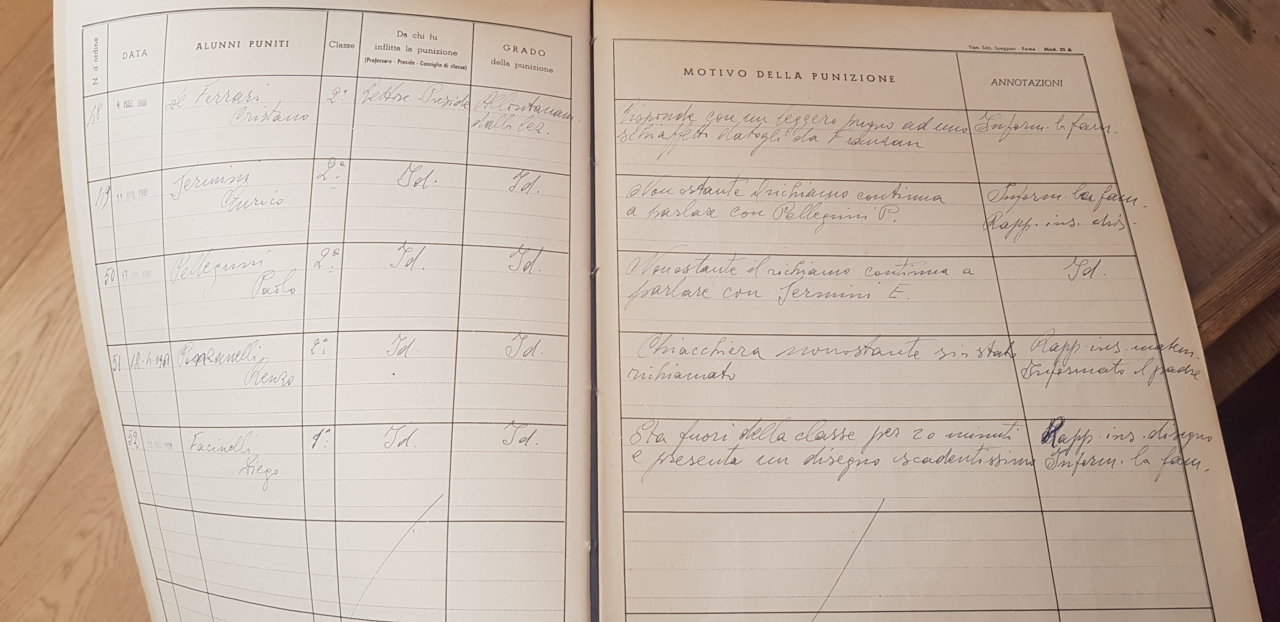 N d ordine
DATA
ALUNNI PUNITI
Classe
Da chi fu
inflitta la punizione
(Professore - Preside - Consiglio di classe)
GRADO
della punizione
Tipo. Edit. Spaggiari - Parma Mod. 25 A
MOTIVO DELLA PUNIZIONE
ANNOTAZIONI
48
De Ferrari
Cristano
2ª
Preside
Allontanam.
dalle lez.
Risponde con un leggero pugno ad uno
schiaffetto datogli da
Inform. la fam.
49
Sermini
Enrico
2ª
Id.
Id.
Nonostante il richiamo continua
a parlare con Pellegrini P.
Inform. la fam.
Rapp. ins. dis.
50
Pellegrini
Paolo
2ª
Id.
Id.
Nonostante il richiamo continua a
parlare con Sermini E.
Id.
51
18-4-1961
Renzo
2ª
Id.
Id.
Chiacchiera nonostante sia stato
richiamato
Rapp. ins. matem.
Informato il padre
52
Facinelli
Diego
1ª
Id.
Id.
Sta fuori della classe per 20 minuti
e presenta un disegno scadentissimo
Rapp. ins. disegno
Inform. la fam.